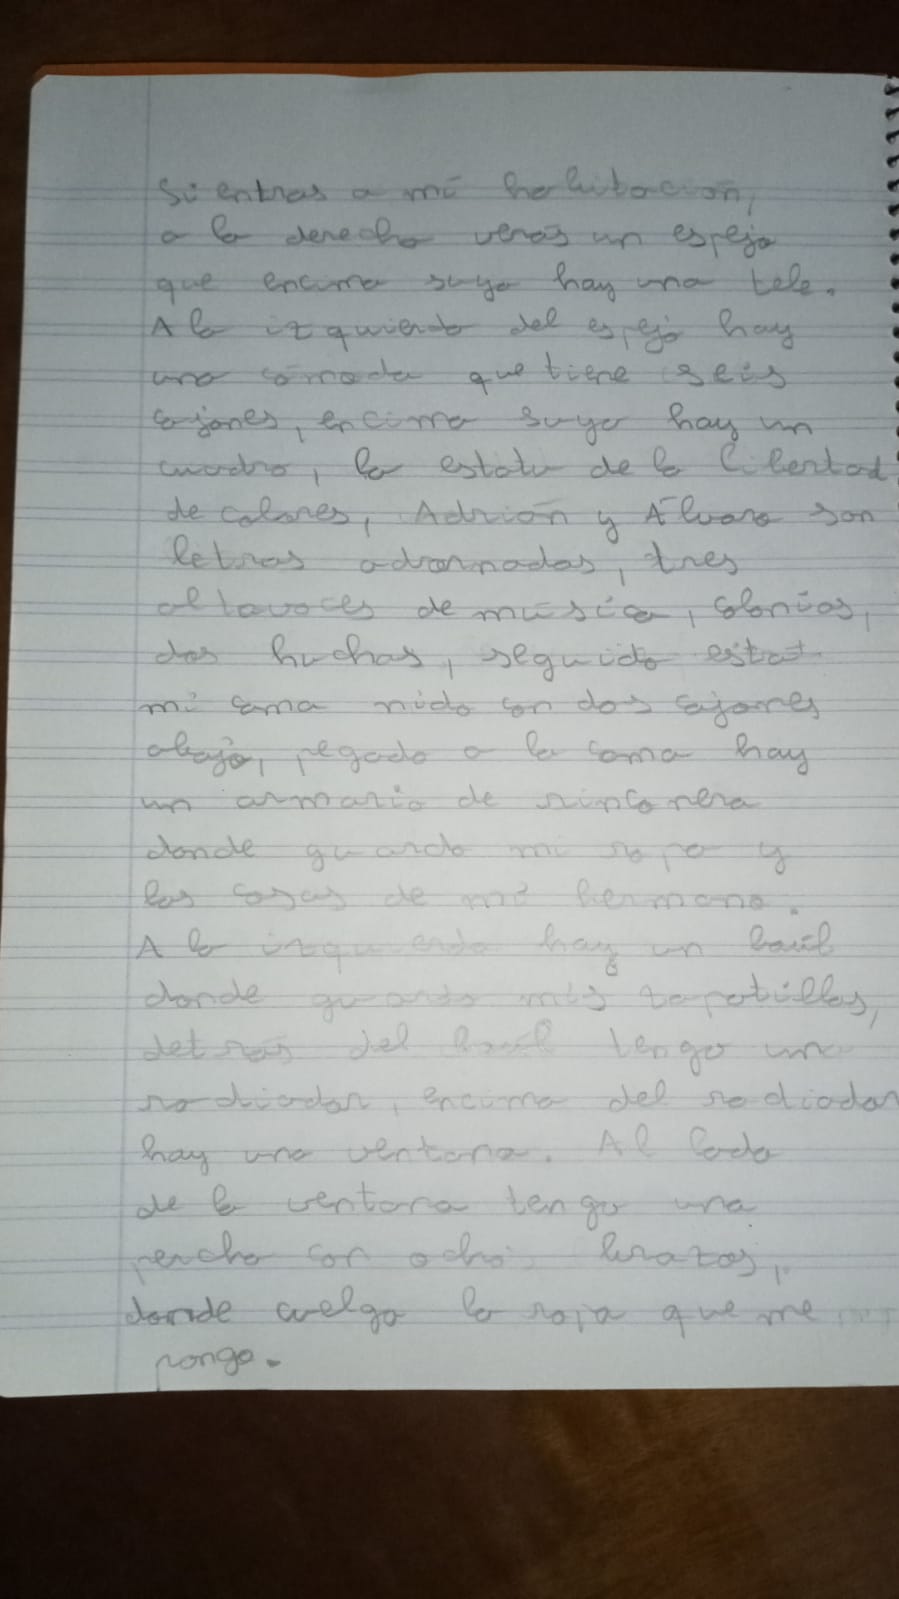 Si entras a mi habitación,
a la derecha verás un espejo
que encima suyo hay una tele.
A la izquierda del espejo hay
una cómoda que tiene seis
cajones, encima suyo hay un
cuadro, la estatu de la libertad
de colores, Adrián y Álvaro son
letras adornadas, tres
altavoces de música, colonias,
dos huchas, seguido esta
mi cama nido con dos cajones
abajo, pegado a la cama hay
un armario de rinconera
donde guardo mi ropa y
las cosas de mi hermano.
A la izquierda hay un baúl
donde guardo mis zapatillas,
detrás del baúl tengo un
radiador, encima del radiador
hay una ventana. Al lado
de la ventana tengo una
percha con ocho brazos,
donde cuelgo la ropa que me
pongo.